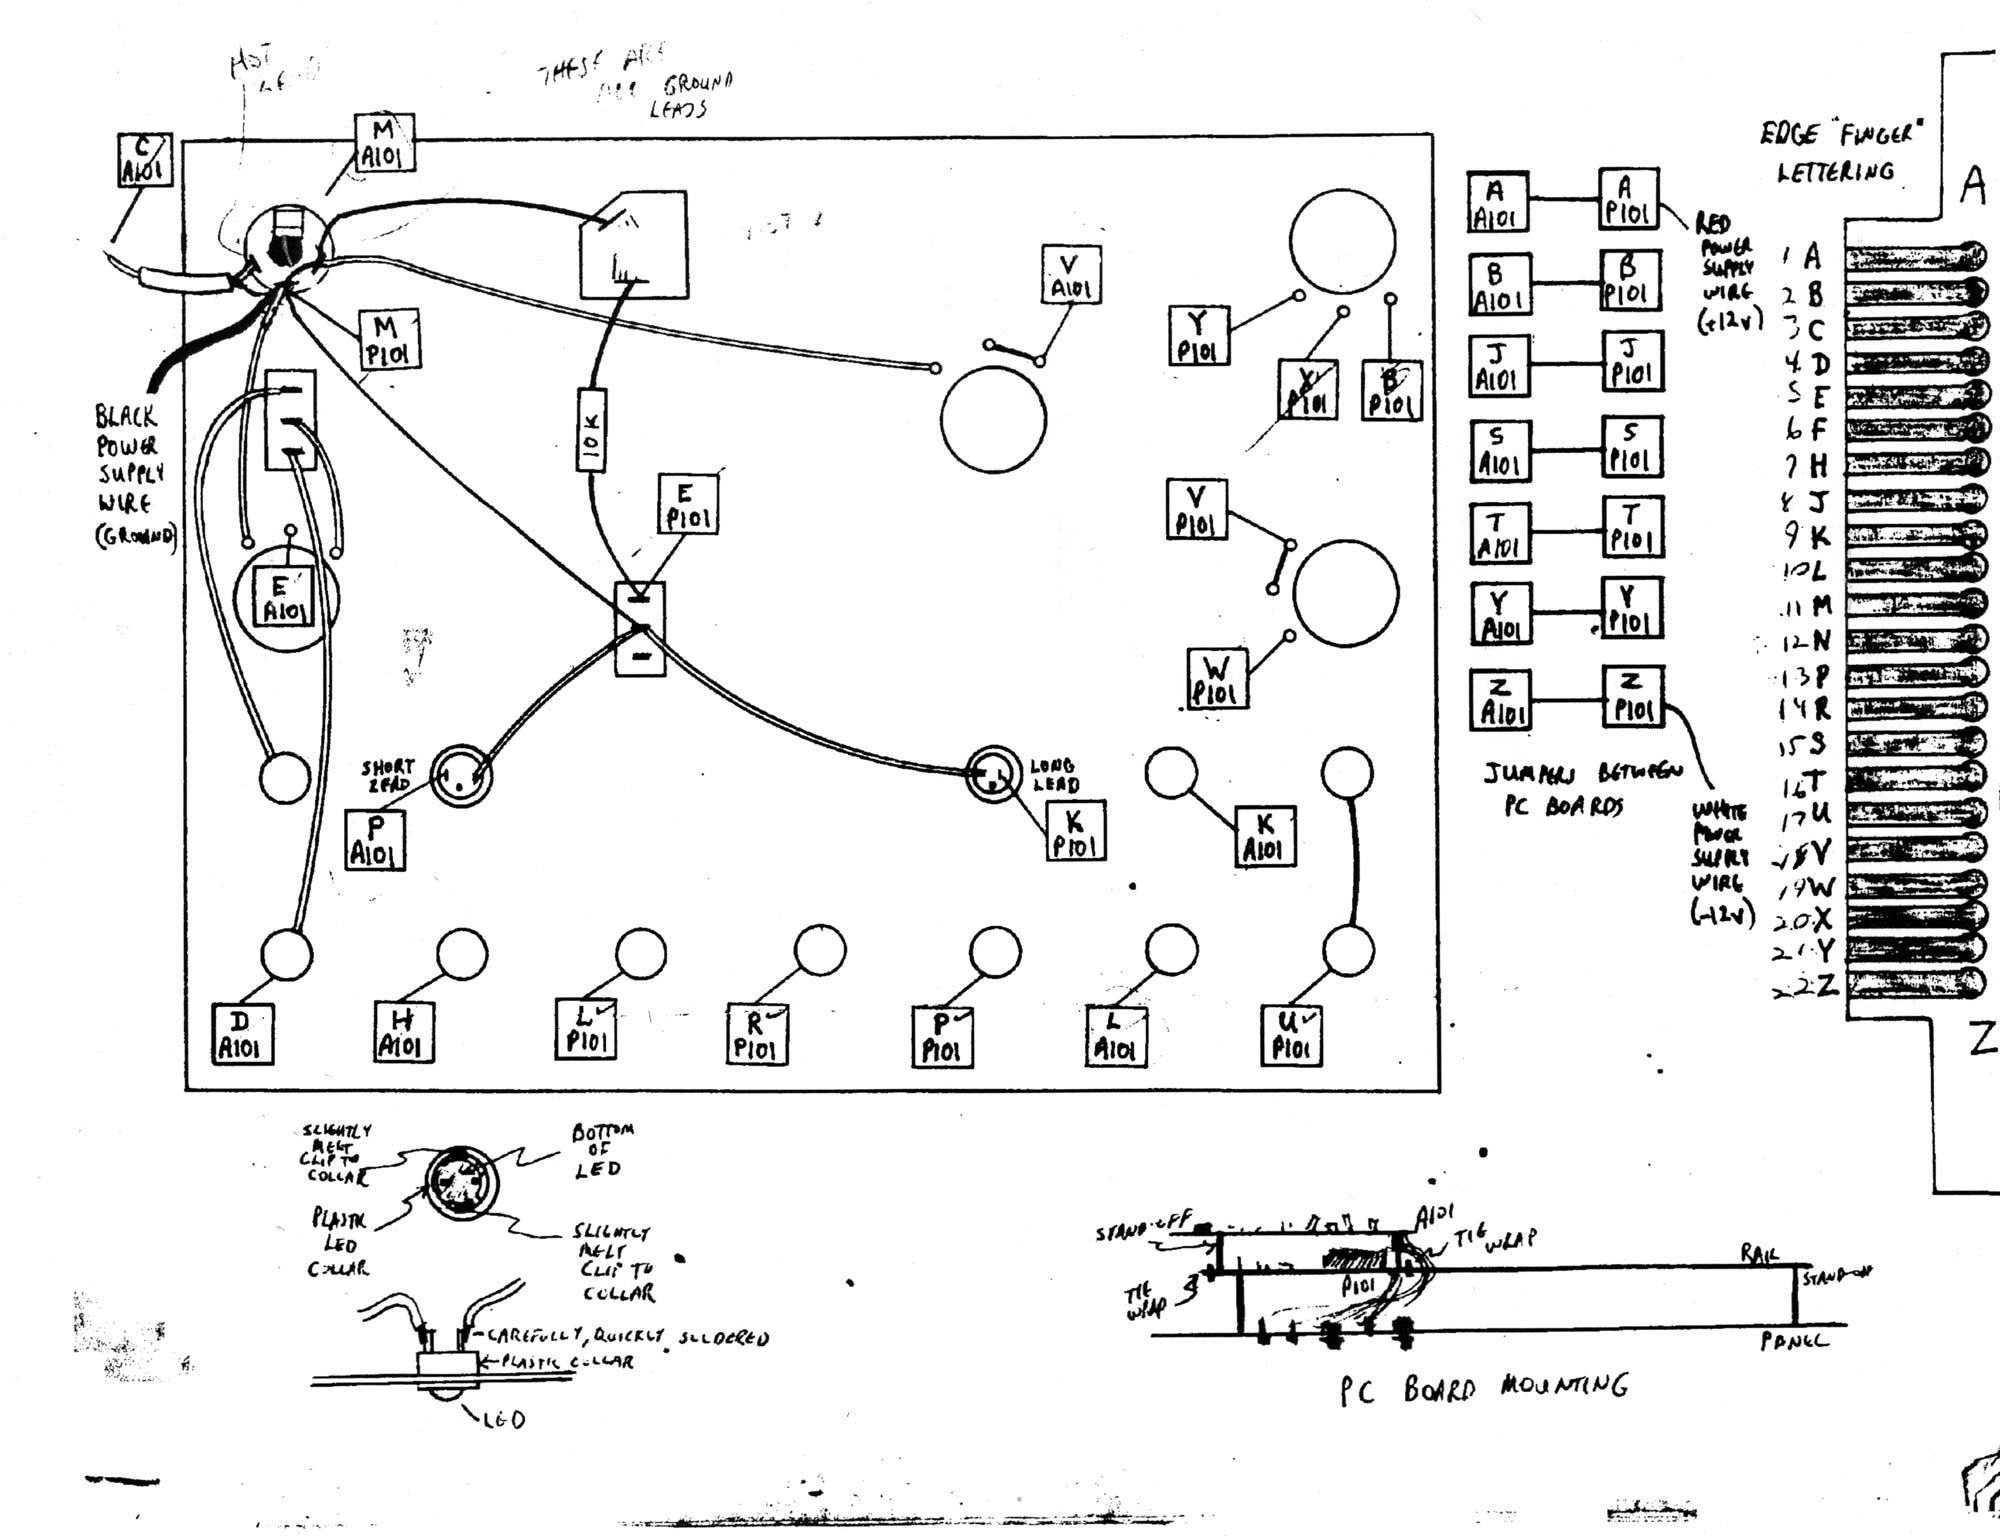 HOT
THESE ARE
ALL GROUND
LEADS
C
A101
M
A101
M
P101
BLACK
POWER
SUPPLY
WIRE
(GROUND)
10K
E
P101
E
A101
V
A101
Y
P101
X
P101
B
P101
V
P101
W
P101
SHORT
LEAD
P
A101
LONG
LEAD
K
P101
K
A101
D
A101
H
A101
L
P101
R
P101
P
P101
L
A101
U
P101
A
A101
A
P101
B
A101
B
P101
J
A101
J
P101
S
A101
S
P101
T
A101
T
P101
Y
A101
Y
P101
Z
A101
Z
P101
RED
POWER
SUPPLY
WIRE
(+12V)
JUMPERS BETWEEN
PC BOARDS
WHITE
POWER
SUPPLY
WIRE
(-12V)
EDGE "FINGER"
LETTERING
A
1 A
2 B
3 C
4 D
5 E
6 F
7 H
8 J
9 K
10 L
11 M
12 N
13 P
14 R
15 S
16 T
17 U
18 V
19 W
20 X
21 Y
22 Z
Z
SLIGHTLY
MELT
CLIP TO
COLLAR
BOTTOM
OF
LED
PLASTIC
LED
COLLAR
SLIGHTLY
MELT
CLIP TO
COLLAR
CAREFULLY, QUICKLY SOLDERED
PLASTIC COLLAR
LED
STAND-OFF
A101
TIE
WRAP
RAIL
P101
STAND-OFF
TIE
WRAP
PANEL
PC BOARD MOUNTING